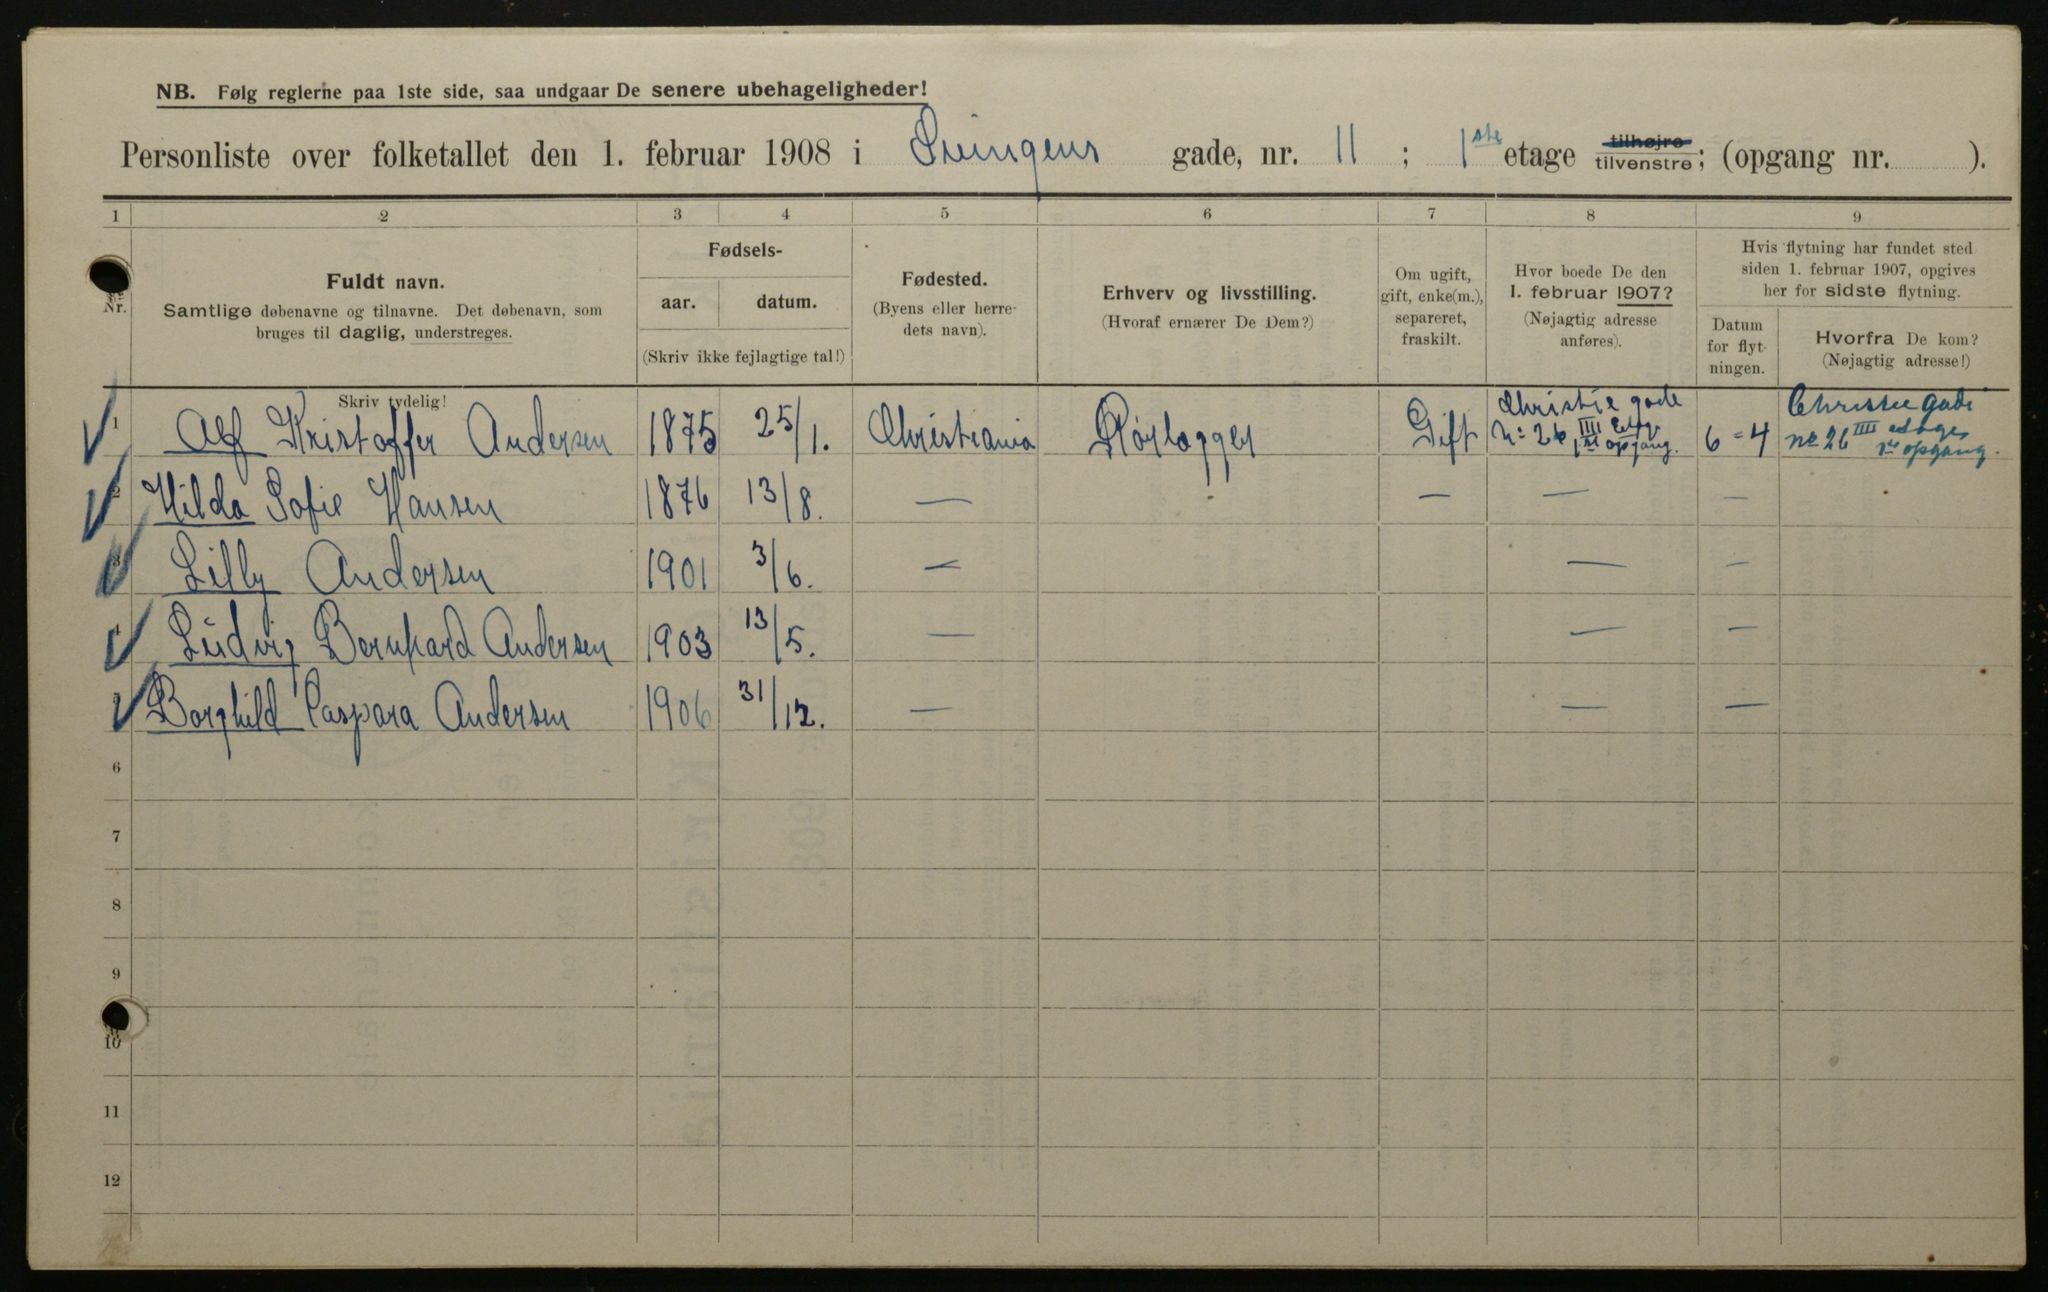 NB. Følg reglerne paa 1ste side, saa undgaar De senere ubehageligheder!
Personliste over folketallet den 1. februar 1908 i Svingens gade, nr. 11 ; 1ste etage tilhøjre tilvenstre; (opgang nr. ).
1 2 3 4 5 6 7 8 9
Nr.
Fuldt navn.
Samtlige døbenavne og tilnavne. Det døbenavn, som
bruges til daglig, understreges.
Skriv tydelig!
Fødsels-
aar. datum.
(Skriv ikke fejlagtige tal!)
Fødested.
(Byens eller herre-
dets navn).
Erhverv og livsstilling.
(Hvoraf ernærer De Dem?)
Om ugift,
gift, enke(m.),
separeret,
fraskilt.
Hvor boede De den
1. februar 1907?
(Nøjagtig adresse
anføres).
Hvis flytning har fundet sted
siden 1. februar 1907, opgives
her for sidste flytning.
Datum
for flyt-
ningen.
Hvorfra De kom?
(Nøjagtig adresse!)
1 Alf Kristoffer Andersen 1875 25/1. Christiania Rörlægger Gift Christie gade No 26 IIII Etg. 1st opgang. 6=4 Christie gade no 26 IIII etages opgang.
2 Hilda Sofie Hansen 1876 13/8. — — — —
3 Lilly Andersen 1901 3/6. — — —
4 Ludvig Bernhard Andersen 1903 13/5. — — —
5 Borghild Caspara Andersen 1906 31/12. — — —
6
7
8
9
10
11
12